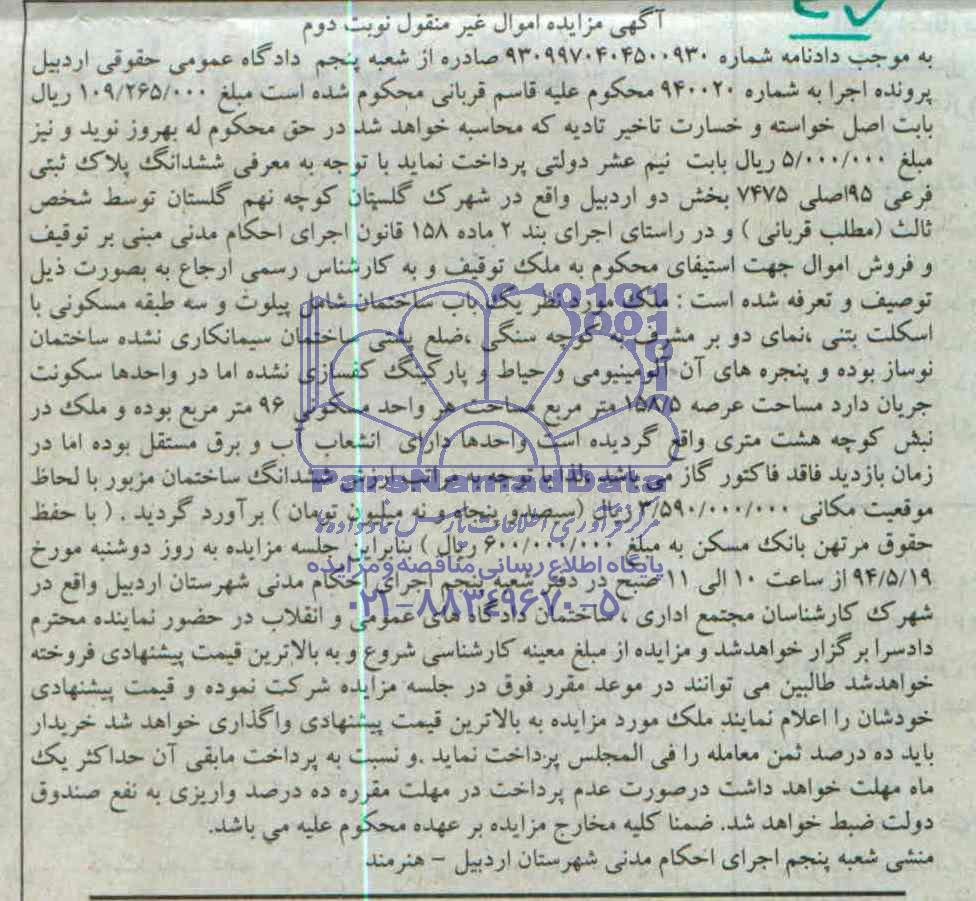 آگهی مزایده اموال غیر منقول نوبت دوم
به موجب دادنامه شماره ۹۳۰۹۹۷۰۴۰۴۵۰۰۹۳۰ صادره از شعبه پنجم دادگاه عمومی حقوقی اردبیل
پرونده اجرا به شماره ۹۴۰۰۲۰ محکوم علیه قاسم قربانی محکوم شده است مبلغ ۱۰۹/۲۶۵/۰۰۰ ریال
بابت اصل خواسته و خسارت تاخیر تادیه که محاسبه خواهد شد در حق محکوم له بهروز نوید و نیز
مبلغ ۵/۰۰۰/۰۰۰ ریال بابت نیم عشر دولتی پرداخت نماید با توجه به معرفی ششدانگ پلاک ثبتی
فرعی ۹۵اصلی ۷۴۷۵ بخش دو اردبیل واقع در شهرک گلستان کوچه نهم گلستان توسط شخص
ثالث (مطلب قربانی ) و در راستای اجرای بند ۲ ماده ۱۵۸ قانون اجرای احکام مدنی مبنی بر توقیف
و فروش اموال جهت استیفای محکوم به ملک توقیف و به کارشناس رسمی ارجاع به بصورت ذیل
توصیف و تعرفه شده است : ملک مورد نظر یک باب ساختمان شامل پیلوت و سه طبقه مسکونی با
اسکلت بتنی ،نمای دو بر مشرف به کوچه سنگی ،ضلع پشتی ساختمان سیمانکاری نشده ساختمان
نوساز بوده و پنجره های آن آلومینیومی و حیاط و پارکینگ کفسازی نشده اما در واحدها سکونت
جریان دارد مساحت عرصه ۱۵۸/۵ متر مربع مساحت هر واحد مسکونی ۹۶ متر مربع بوده و ملک در
نبش کوچه هشت متری واقع گردیده است واحدها دارای انشعاب آب و برق مستقل بوده اما در
زمان بازدید فاقد فاکتور گاز می باشد ولذا با توجه به مراتب ارزش ششدانگ ساختمان مزبور با لحاظ
ParsNamadData
موقعیت مکانی ۳/۵۹۰/۰۰۰/۰۰۰ ریال (سیصد و پنجاه و نه میلیون تومان ) برآورد گردید . ( با حفظ
حقوق مرتهن بانک مسکن به مبلغ ۶۰۰/۰۰۰/۰۰۰ ریال ) بنابراین جلسه مزایده به روز دوشنبه مورخ
پایگاه اطلاع رسانی مناقصه و مزایده
۹۴/۵/۱۹ از ساعت ۱۰ الی ۱۱ صبح در دفتر شعبه پنجم اجرای احکام مدنی شهرستان اردبیل واقع در
۰۲۱-۸۸۳۴۹۶۷۰-۵
شهرک کارشناسان مجتمع اداری ، ساختمان دادگاه های عمومی و انقلاب در حضور نماینده محترم
دادسرا برگزار خواهدشد و مزایده از مبلغ معینه کارشناسی شروع و به بالاترین قیمت پیشنهادی فروخته
خواهدشد طالبین می توانند در موعد مقرر فوق در جلسه مزایده شرکت نموده و قیمت پیشنهادی
خودشان را اعلام نمایند ملک مورد مزایده به بالاترین قیمت پیشنهادی واگذاری خواهد شد خریدار
باید ده درصد ثمن معامله را فی المجلس پرداخت نماید .و نسبت به پرداخت مابقی آن حداکثر یک
ماه مهلت خواهد داشت درصورت عدم پرداخت در مهلت مقرره ده درصد واریزی به نفع صندوق
دولت ضبط خواهد شد. ضمنا کلیه مخارج مزایده بر عهده محکوم علیه می باشد.
منشی شعبه پنجم اجرای احکام مدنی شهرستان اردبیل – هنرمند